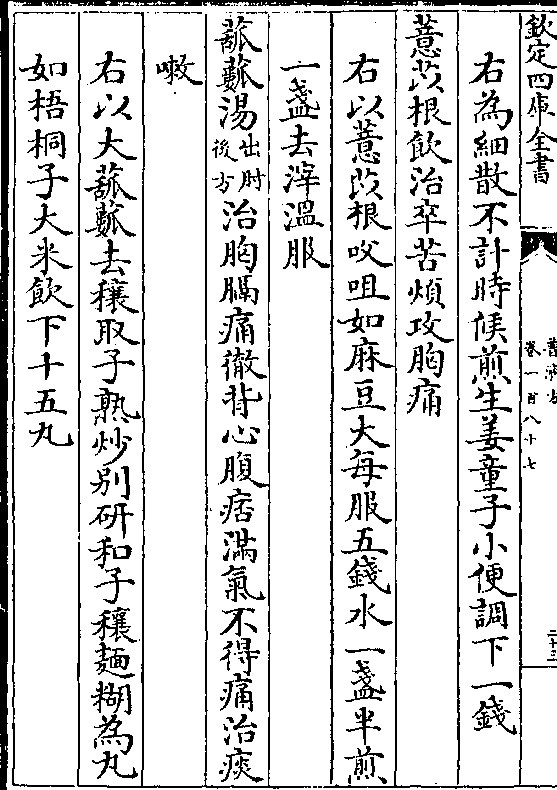 欽定四庫全書
普濟方
卷一百八十七
二十三
右為細散不計時候煎生姜童子小便調下一錢
薏苡根飲治卒苦煩攻胸痛
右以薏苡根㕮咀如麻豆大每服五錢水一盞半煎
一盞去滓溫服
蓏蓏湯出肘後方治胸膈痛徹背心腹痞滿氣不得痛治痰
嗽
右以大蓏蓏去穰取子熟炒别研和子穰麵糊為丸
如梧桐子大米飲下十五丸